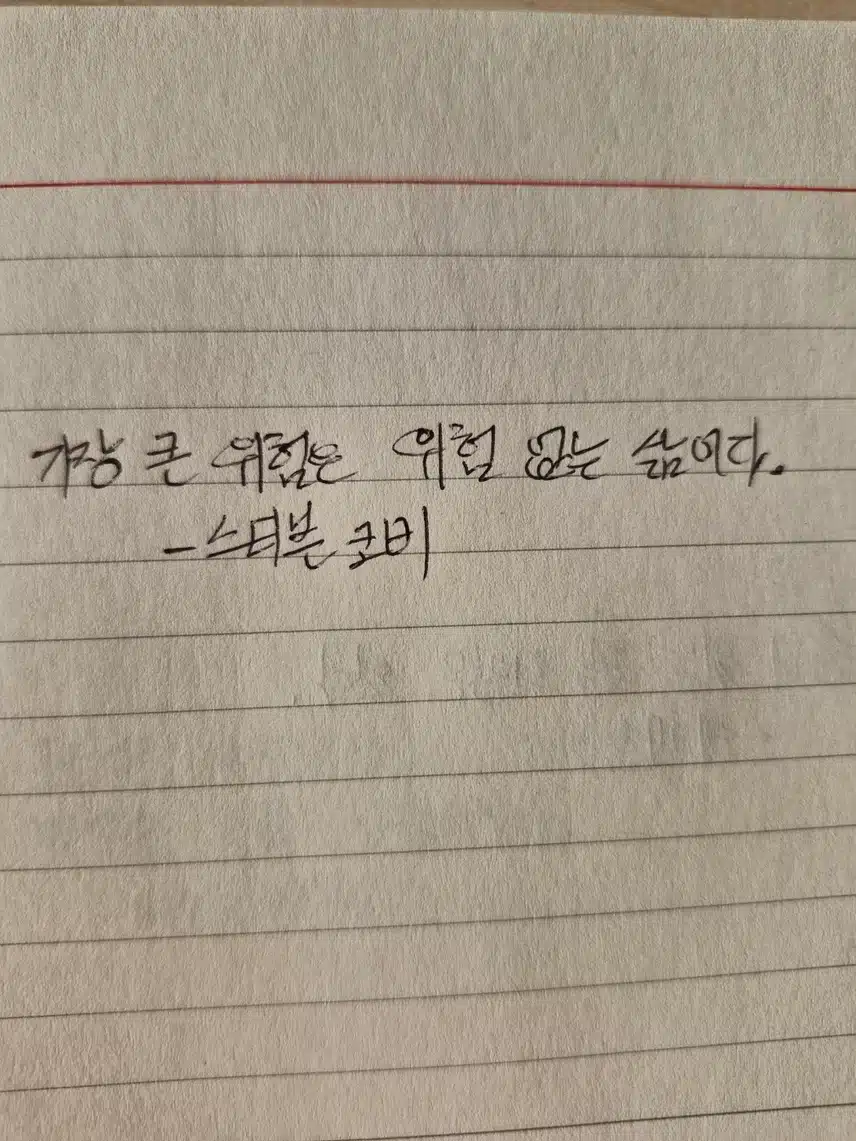 가장 큰 위험은 위험 없는 삶이다.
- 스티븐 코비